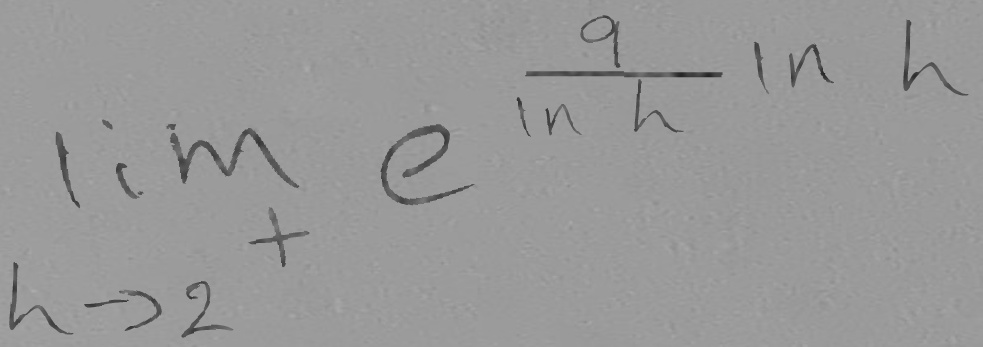 \lim_{h \to 2^+} e^{\frac{9}{\ln h} \ln h}